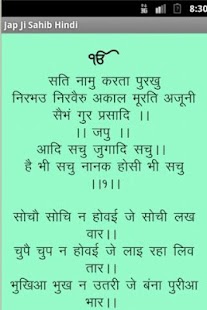 3G
9:35 PM
Jap Ji Sahib Hindi
ੴ
सति नामु करता पुरखु
निरभउ निरवैरु अकाल मूरति अजूनी
सैभं गुर प्रसादि ।।
।। जपु ।।
आदि सचु जुगादि सचु।।
है भी सचु नानक होसी भी सचु
।।१।।
सोचौ सोचि न होवई जे सोची लख
वार।।
चुपै चुप न होवई जे लाइ रहा लिव
तार।।
भुखिआ भुख न उतरी जे बंना पुरीआ
भार।।